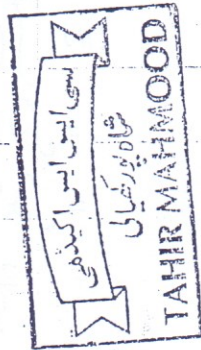 سی ایس ایس اکیڈمی
شاہ پور کیال
TAHIR MAHMOOD